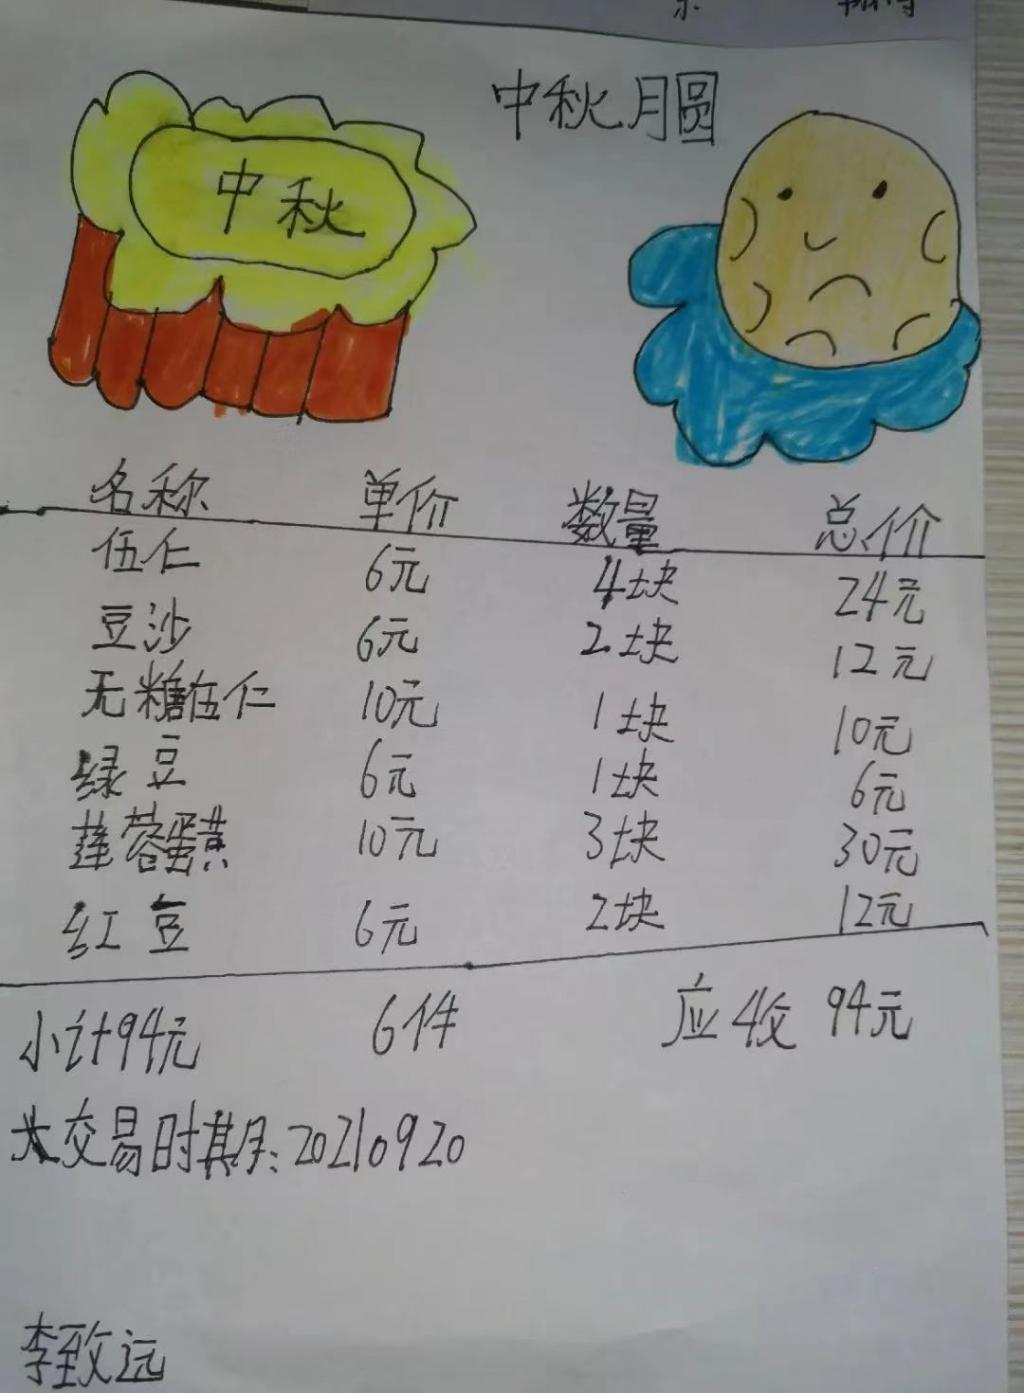 中秋月圆
中秋
名称 单价 数量 总价
伍仁 6元 4块 24元
豆沙 6元 2块 12元
无糖伍仁 10元 1块 10元
绿豆 6元 1块 6元
莲蓉蛋黄 10元 3块 30元
红豆 6元 2块 12元
小计94元 6件 应收 94元
交易时期:20210920
李致远